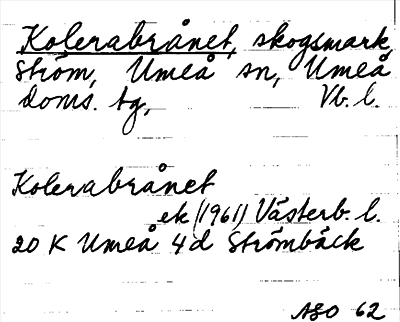 Kolerabrånet, skogsmark,
Ström, Umeå sn, Umeå
doms. tg, Vb. l.
Kolerabrånet
ek (1961) Västerb. l.
20 K Umeå 4d Strömbäck
ASO 62